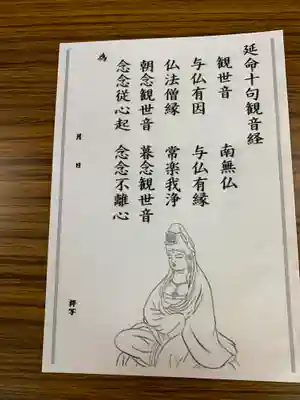 延命十句観音経
観世音　南無仏
与仏有因　与仏有縁
仏法僧縁　常楽我浄
朝念観世音　暮念観世音
念念従心起　念念不離心
為
月　日
拝写